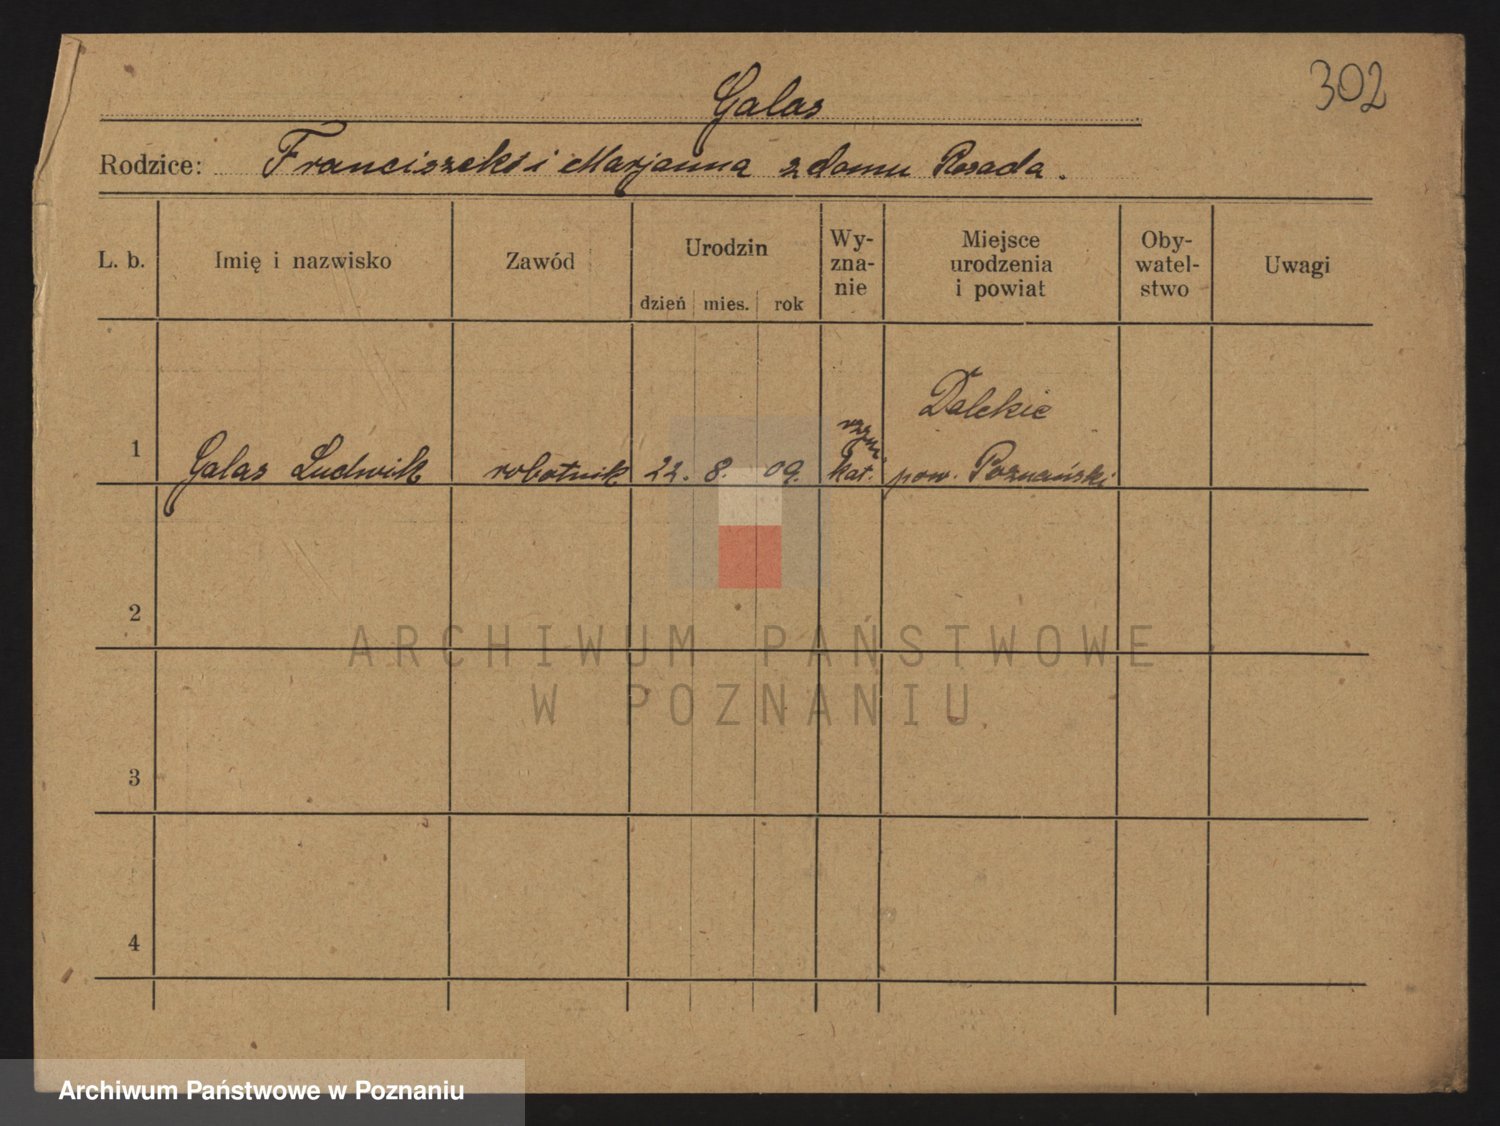 302
Galas
Rodzice: Franciszek i Marjanna z domu Rosada.
L. b. Imię i nazwisko Zawód Urodzin dzień mies. rok Wy-zna-nie Miejsce urodzenia i powiat Oby-watel-stwo Uwagi
Dalekie
1 Galas Ludwik robotnik 22. 8. 09. rzym. kat. pow. Poznański
2
ARCHIWUM PAŃSTWOWE
W POZNANIU
3
4
Archiwum Państwowe w Poznaniu